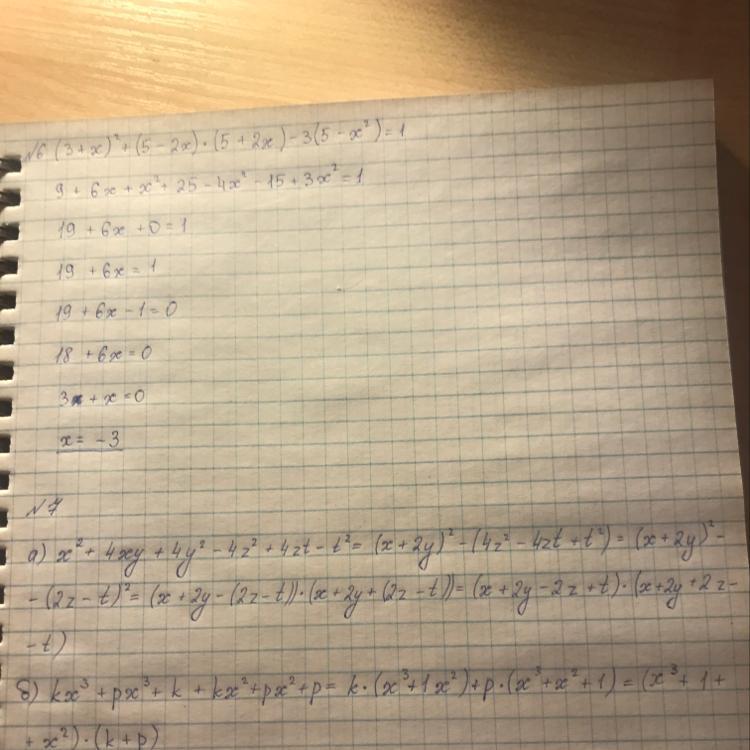 №6 (3+x)²+(5-2x)·(5+2x)-3(5-x²)=1
9+6x+x²+25-4x²-15+3x²=1
19+6x+0=1
19+6x=1
19+6x-1=0
18+6x=0
3+x=0
x=-3
№7
а) x²+4xy+4y²-4z²+4zt-t²=(x+2y)²-(4z²-4zt+t²)=(x+2y)²-
-(2z-t)²=(x+2y-(2z-t))·(x+2y+(2z-t))=(x+2y-2z+t)·(x+2y+2z-
-t)
б) kx³+px³+k+kx²+px²+p=k·(x³+1x²)+p·(x³+x²+1)=(x³+1+
+x²)·(k+p)